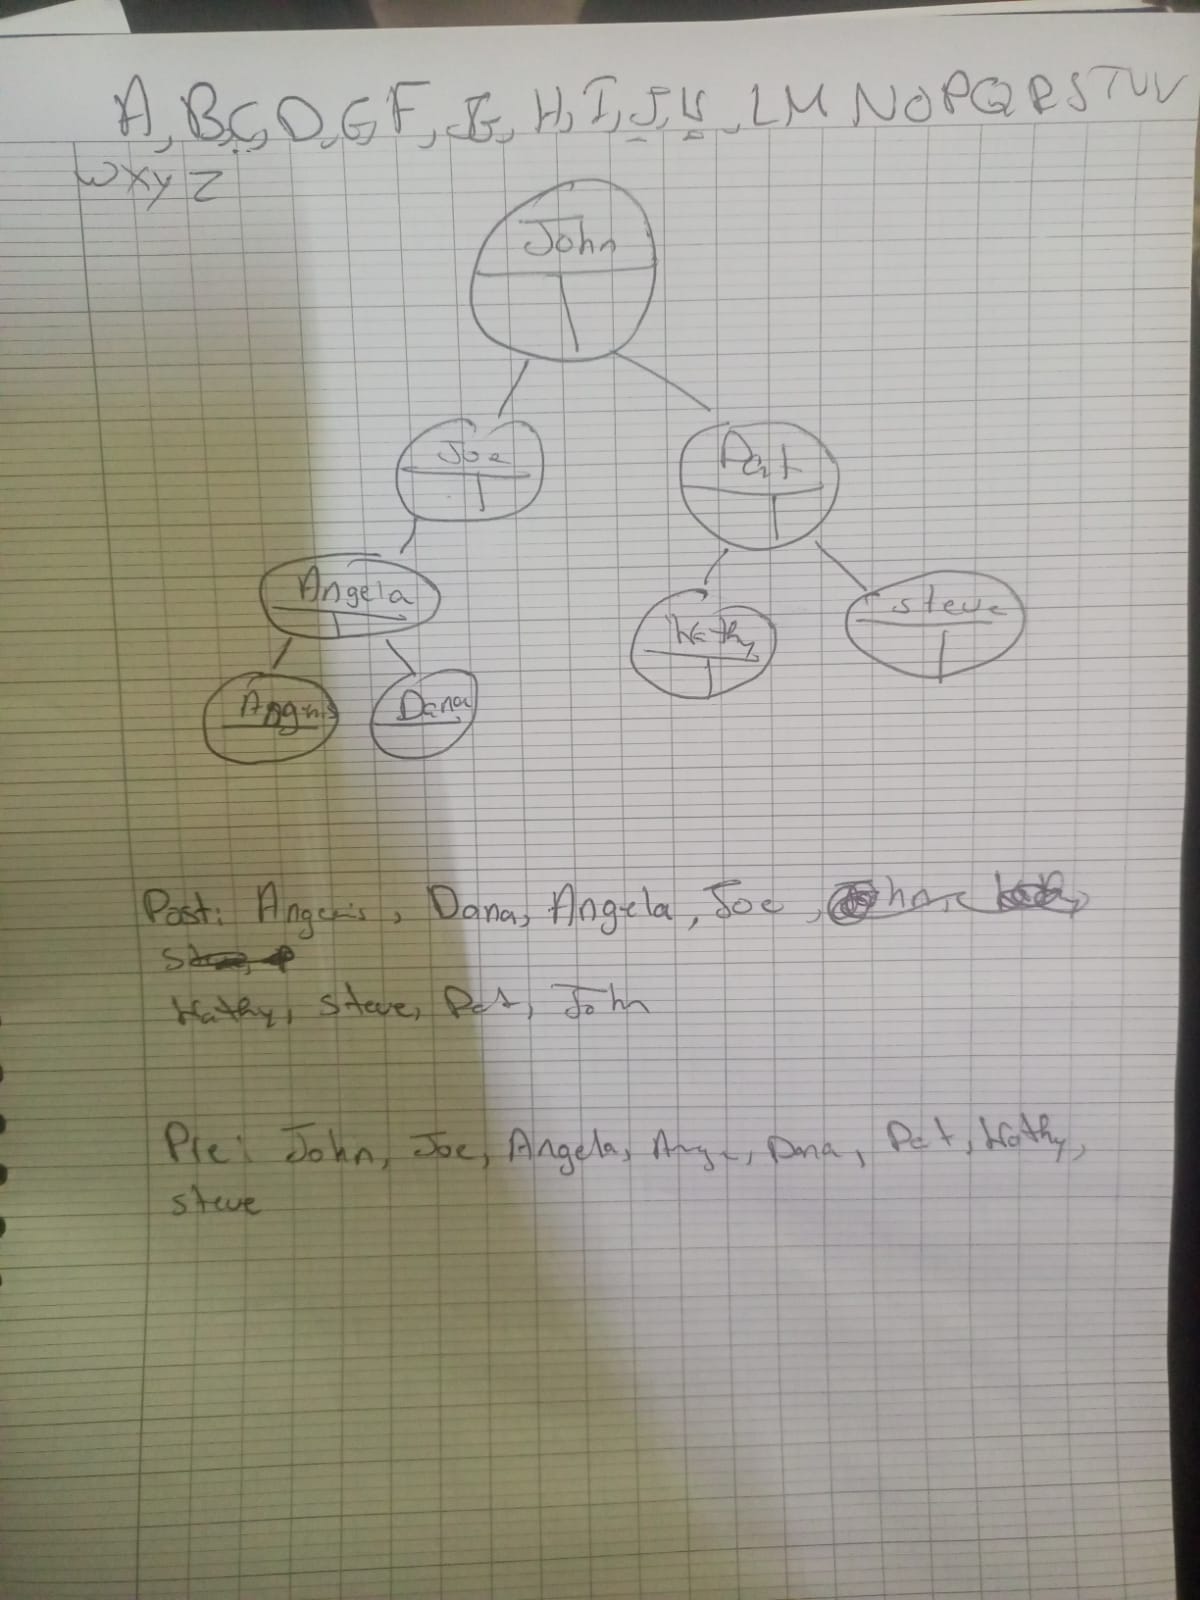 A, B, C, D, E, F, G, H, I, J, K, L M N O P Q R S T U V
W X Y Z
John
Joe
Pat
Angela
Kathy
Steve
Dana
Post: , Dana, Angela, Joe,
Kathy, Steve, Pat, John
Pre: John, Joe, Angela, Dana, Pat, Kathy,
Steve